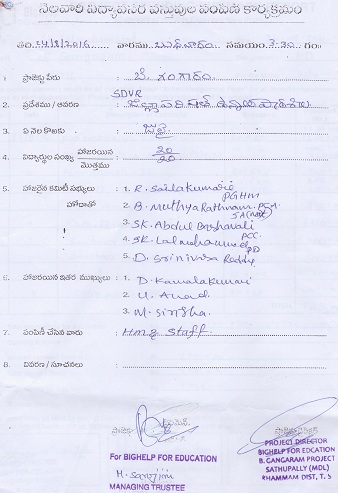 నెలవారీ విద్యావసర వస్తువుల పంపిణీ కార్యక్రమం
తేది: 4/8/2016 వారము. బుధవారం సమయం. 3-30 గం
1. ప్రాజెక్టు పేరు : బి. గంగారం
SDVR
2. ప్రదేశము / ఆవరణ : జిల్లా పరిషత్ ఉన్నత పాఠశాల
3. ఏ నెల కొరకు : జులై
4. విద్యార్థుల సంఖ్య హాజరయిన / మొత్తము : 20 / 20
5. హాజరైన కమిటీ సభ్యులు : 1. R. Sailakumari PGHM
హోదాతో 2. B. Muthya Rathnam, PCA SA
3. SK. Abdul Basharali PCC
4. SK. Lal mohammed PD
5. D. Srinivasa Reddy
6. హాజరయిన ఇతర ముఖ్యులు : 1. D. Kamala Kumari
2. U. Anand
3. M. Sirisha
7. పంపిణీ చేసిన వారు : Hmg Staff
8. వివరణ / సూచనలు :
For BIGHELP FOR EDUCATION
M. Sarojini
MANAGING TRUSTEE
PROJECT DIRECTOR
BIGHELP FOR EDCATION
B. GANGARAM PROJECT
SATHUPALLY (MDL)
KHAMMAM DIST, T. S